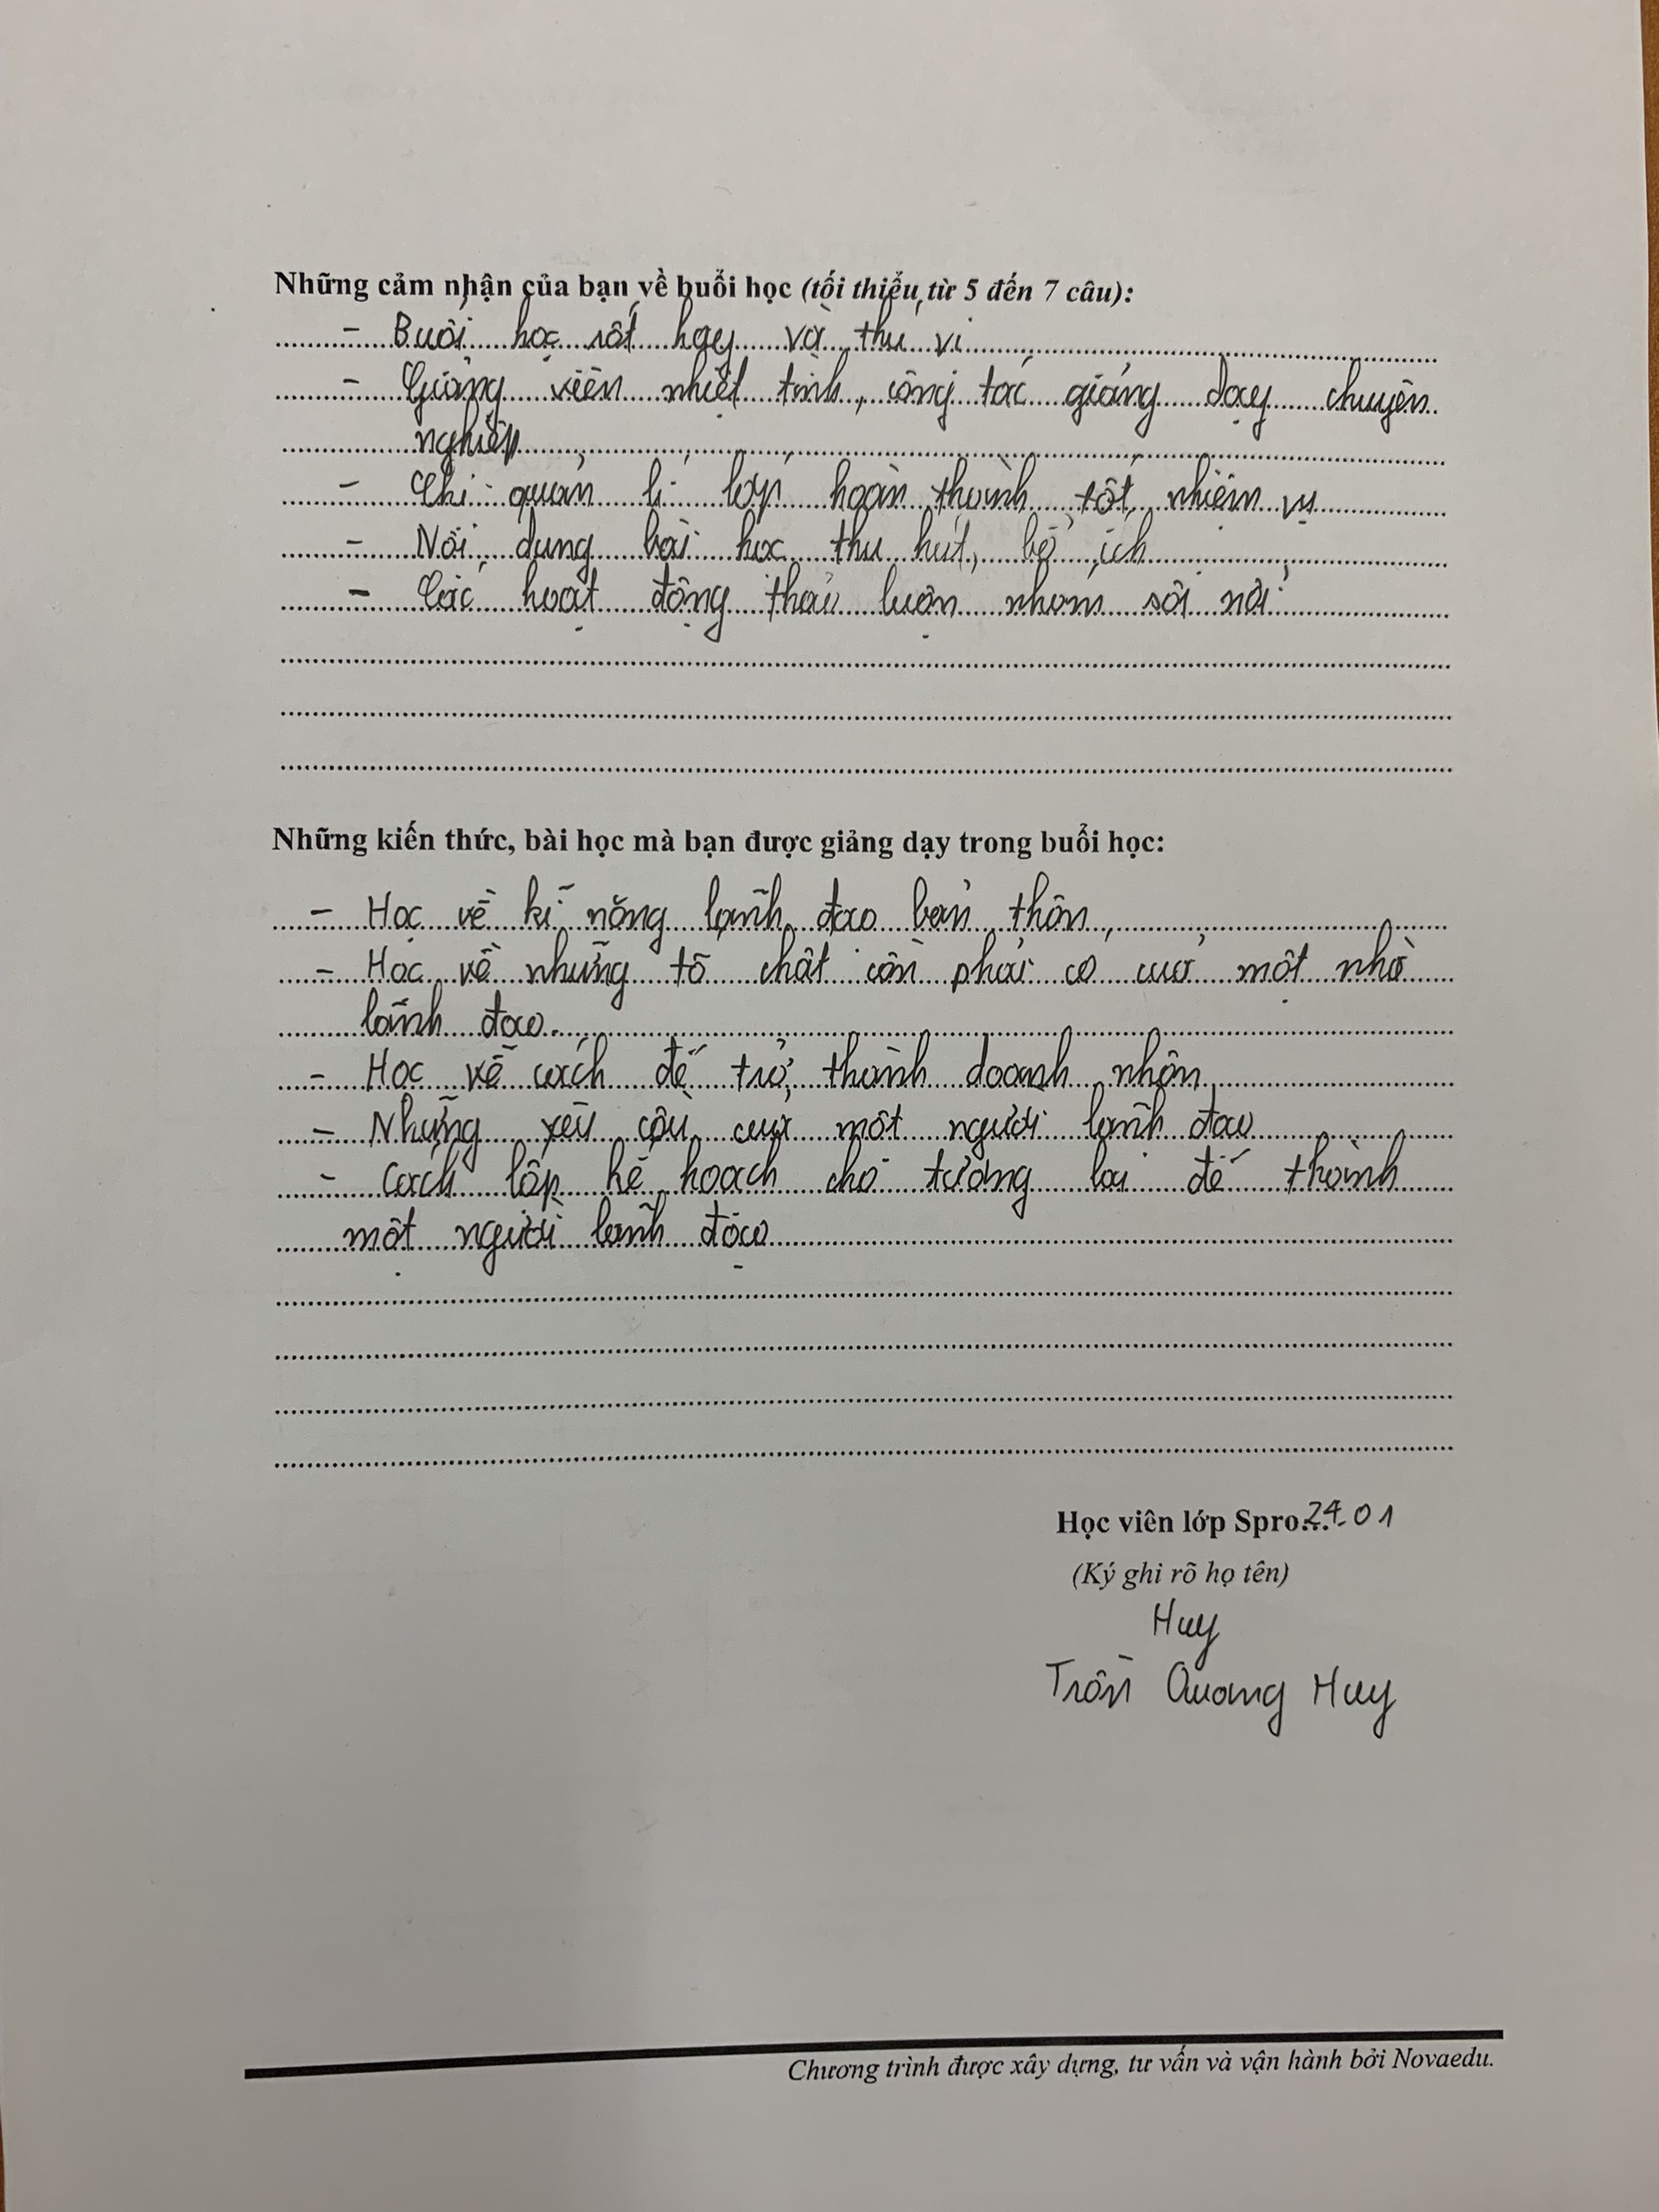 Những cảm nhận của bạn về buổi học (tối thiểu từ 5 đến 7 câu):
- Buổi học rất hay và thú vị
- Giảng viên nhiệt tình, công tác giảng dạy chuyên
nghiệp
- Chị quản lí lớp hoàn thành tốt nhiệm vụ
- Nội dung bài học thu hút, bổ ích
- Các hoạt động thảo luận nhóm sôi nổi
Những kiến thức, bài học mà bạn được giảng dạy trong buổi học:
- Học về kĩ năng lãnh đạo bản thân
- Học về những tố chất cần phải có của một nhà
lãnh đạo.
- Học về cách để trở thành doanh nhân
- Những yêu cầu của một người lãnh đạo
- Cách lập kế hoạch cho tương lai để thành
một người lãnh đạo
Học viên lớp Spro...24.01
(Ký ghi rõ họ tên)
Huy
Trần Quang Huy
Chương trình được xây dựng, tư vấn và vận hành bởi Novaedu.